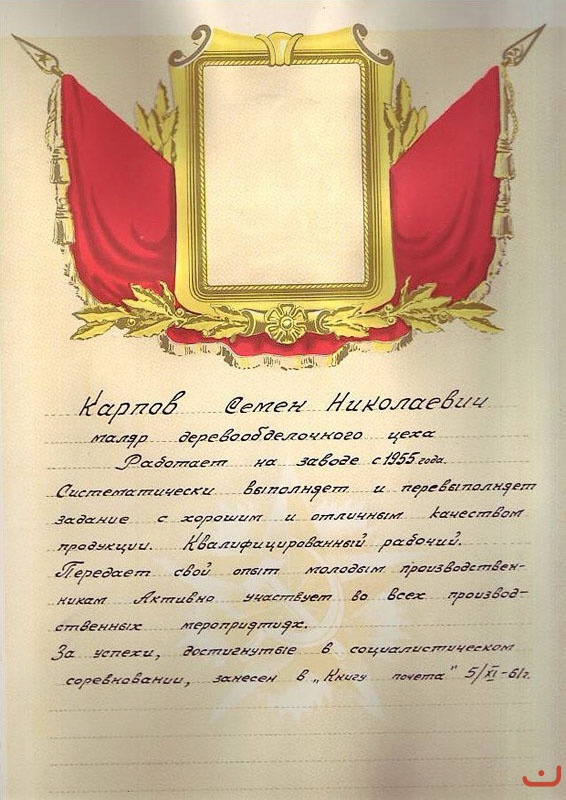 Карпов Семен Николаевич
маляр деревообделочного цеха
Работает на заводе с 1955 года.
Систематически выполняет и перевыполняет
задание с хорошим и отличным качеством
продукции. Квалифицированный рабочий.
Передает свой опыт молодым производствен-
никам Активно участвует во всех производ-
ственных мероприятиях.
За успехи, достигнутые в социалистическом
соревновании, занесен в „Книгу почета" 5/XI-61г.